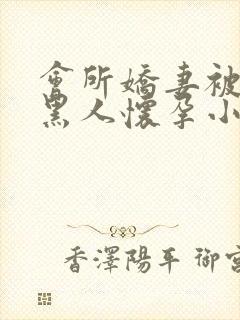 會所嬌妻被
黑人懷孕小
香澤陽平 御宮